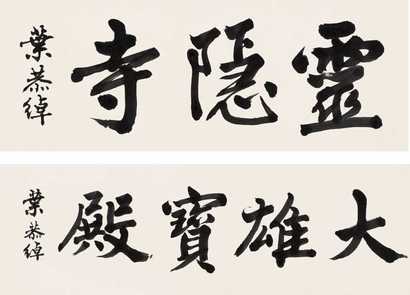 靈隱寺
葉恭綽
大雄寶殿
葉恭綽